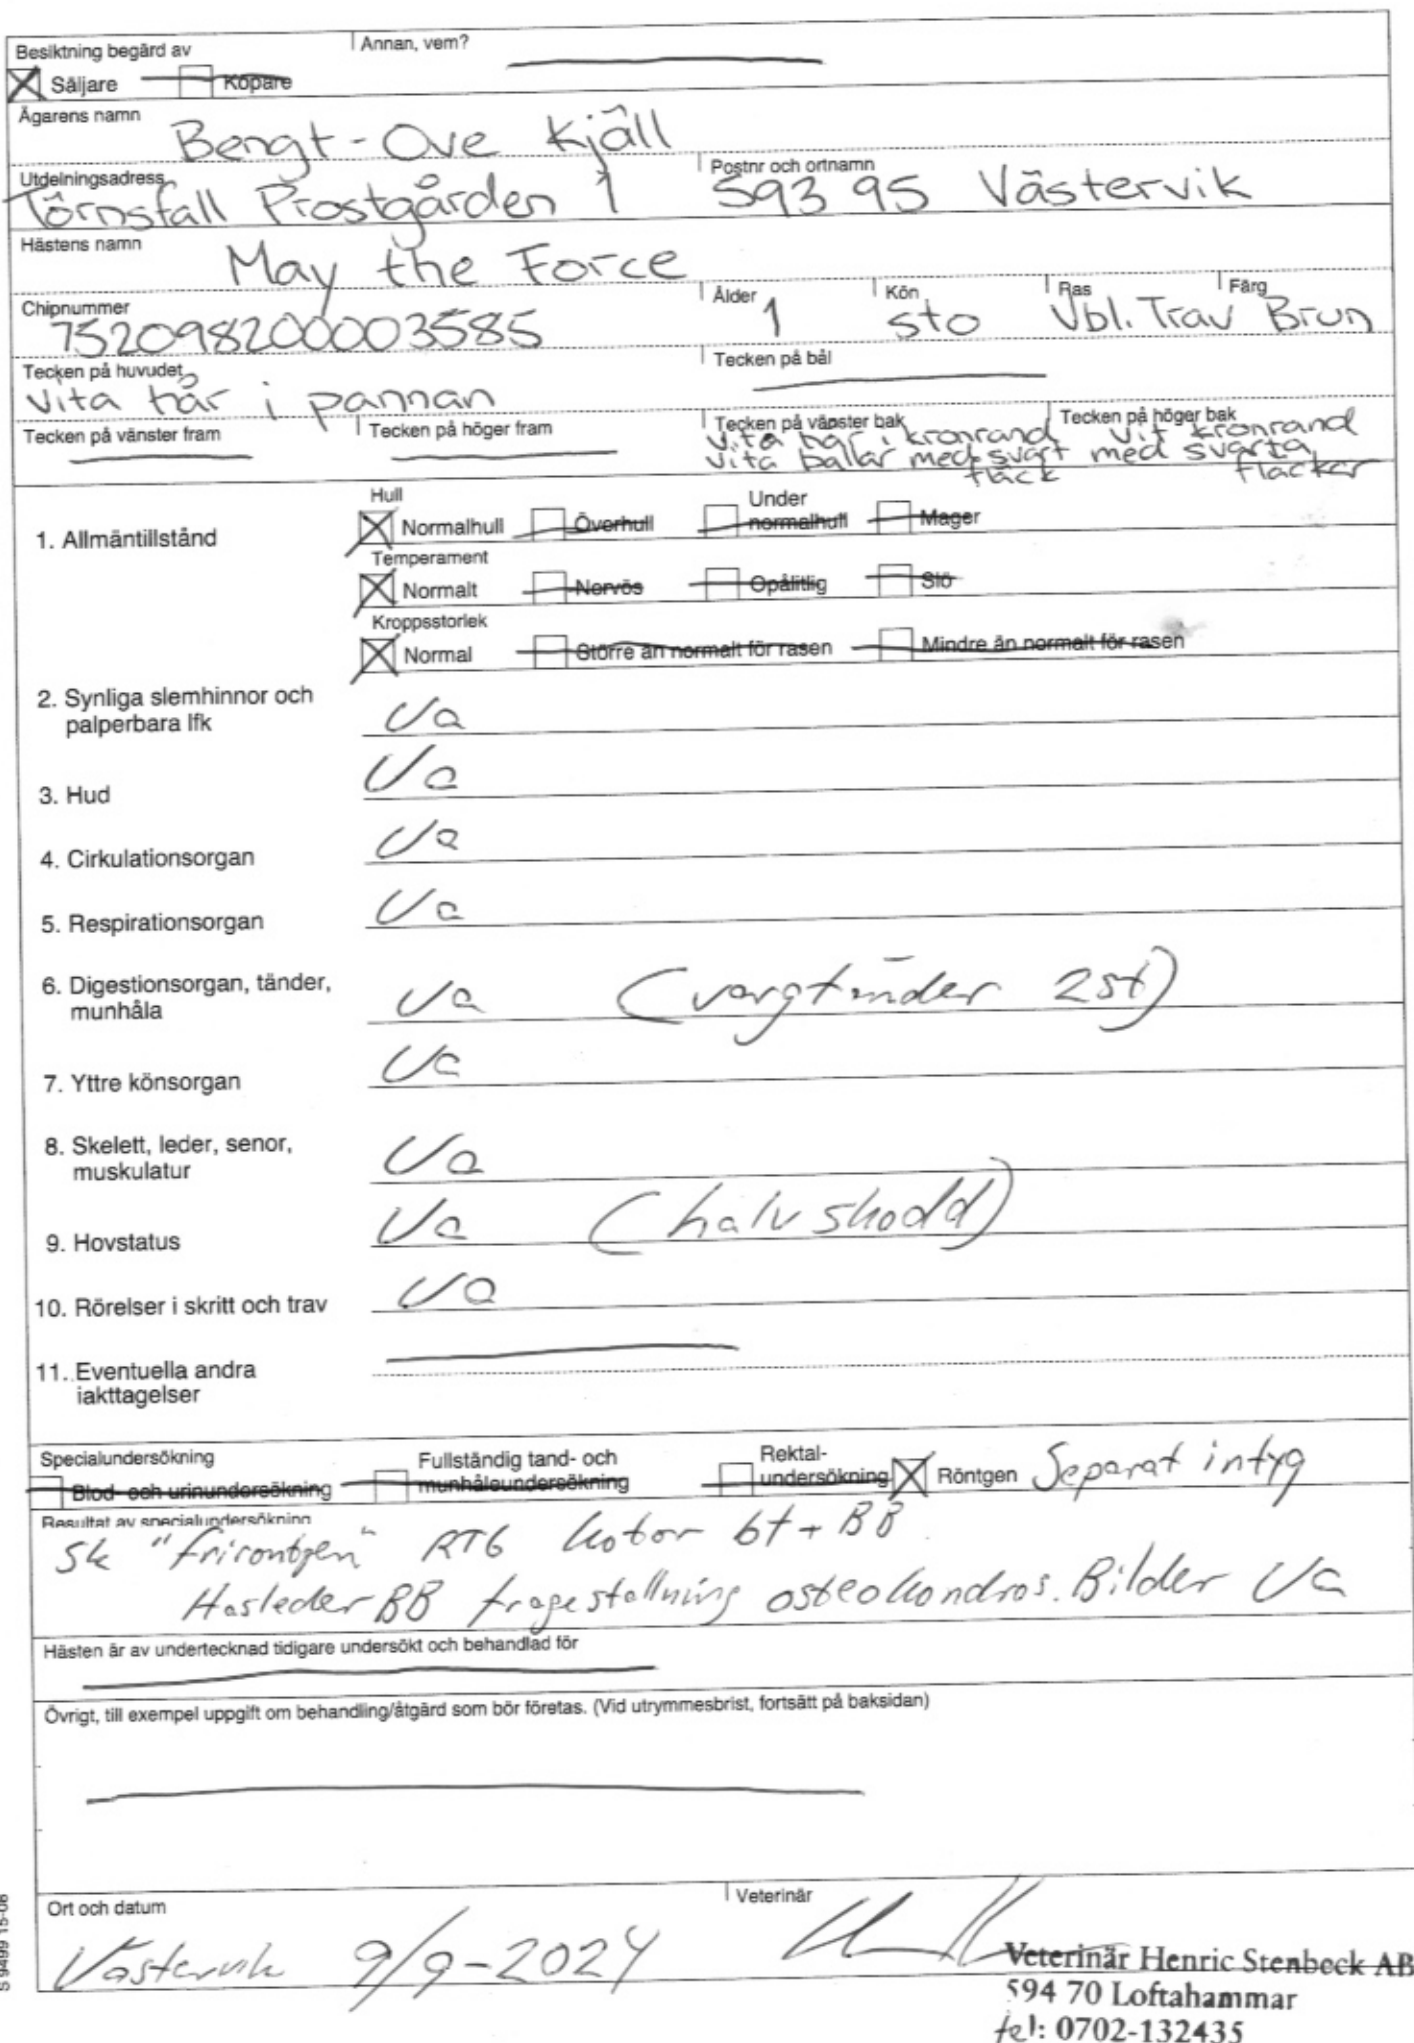 Besiktning begärd av Annan, vem?
Säljare Köpare
Ägarens namn
Bengt-Ove Kjäll
Utdelningsadress Postnr och ortnamn
Törnsfall Prostgården 1 593 95 Västervik
Hästens namn
May the Force
Chipnummer Ålder Kön Ras Färg
752098200003585 1 sto Vbl. Trav Brun
Tecken på huvudet Tecken på bål
vita hår i pannan
Tecken på vänster fram Tecken på höger fram Tecken på vänster bak Tecken på höger bak
vita hår i kronrand vit kronrand
vita ballar med svart med svarta
fläck fläckar
Hull
1. Allmäntillstånd Normalhull Överhull Under normalhull Mager
Temperament
Normalt Nervös Opålitlig Slö
Kroppsstorlek
Normal Större än normalt för rasen Mindre än normalt för rasen
2. Synliga slemhinnor och
palperbara lfk Ua
3. Hud Ua
4. Cirkulationsorgan Ua
5. Respirationsorgan Ua
6. Digestionsorgan, tänder,
munhåla Ua (vargtänder 2st)
7. Yttre könsorgan Ua
8. Skelett, leder, senor,
muskulatur Ua
9. Hovstatus Ua (halvskodd)
10. Rörelser i skritt och trav Ua
11. Eventuella andra
iakttagelser
Specialundersökning Fullständig tand- och Rektal-
Blod- och urinundersökning munhåleundersökning undersökning Röntgen Separat intyg
Resultat av specialundersökning
sk "friröntgen" RTG kotor bf + BB
Hasleder BB frågeställning osteokondros. Bilder Ua
Hästen är av undertecknad tidigare undersökt och behandlad för
Övrigt, till exempel uppgift om behandling/åtgärd som bör företas. (Vid utrymmesbrist, fortsätt på baksidan)
Ort och datum Veterinär
Västervik 9/9-2024
Veterinär Henric Stenbeck AB
594 70 Loftahammar
tel: 0702-132435
S 9499 15-06